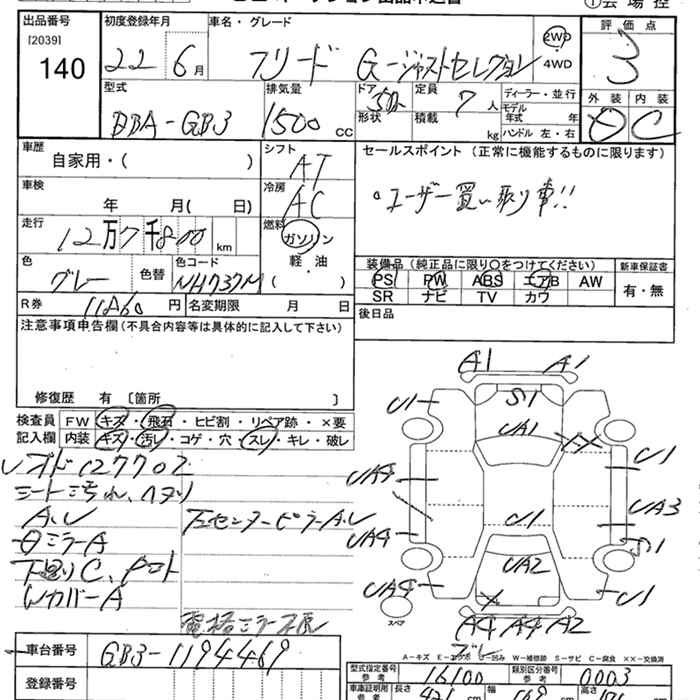 出品番号
[2039]
140
初度登録年月
22 6月
車名・グレード
フリード G-ジャストセレクション
2WD
4WD
評価点
3
型式
DBA-GB3
排気量
1500 CC
ドア 形状
5Dr
定員 7人
積載 kg
ディーラー・並行
モデル年式 年
ハンドル 左・右
外装 内装
C
車歴
自家用・( )
シフト
AT
車検
年 月( 日)
冷房
AC
走行
12万7千800 km
燃料
ガソリン
軽・油
( )
色
グレー
色替
色コード
NH737M
R券
11860円
名変期限 月 日
セールスポイント (正常に機能するものに限ります)
。ユーザー買い取り車!!
装備品(純正品に限り○をつけてください)
PS PW ABS エアB AW
SR ナビ TV カワ
新車保証書
有・無
後日品
注意事項申告欄(不具合内容等は具体的に記入して下さい)
修復歴 有 〔箇所 〕
検査員 記入欄
FW キズ・飛石・ヒビ割・リペア跡・×要
内装 キズ・汚レ・コゲ・穴・スレ・キレ・破レ
シート汚れ、ヘタリ
A.U
左センターピラーA.U
ミラーA
下回りC、
WカバーA
電格ミラー不良
A1 A1
S1
U1
UA1
XX
U1
UA4
UA3
U1
UA4
S1
UA2
UA4
X
U1
スペア
A4 A4 A2
A-キズ E-エクボ U-凹み W-補修跡 S-サビ C-腐食 XX-交換済
車台番号
GB3-1194469
登録番号
型式指定番号 参考
16100
類別区分番号 参考
0003
車庫証明用 参考
長さ 421cm
幅